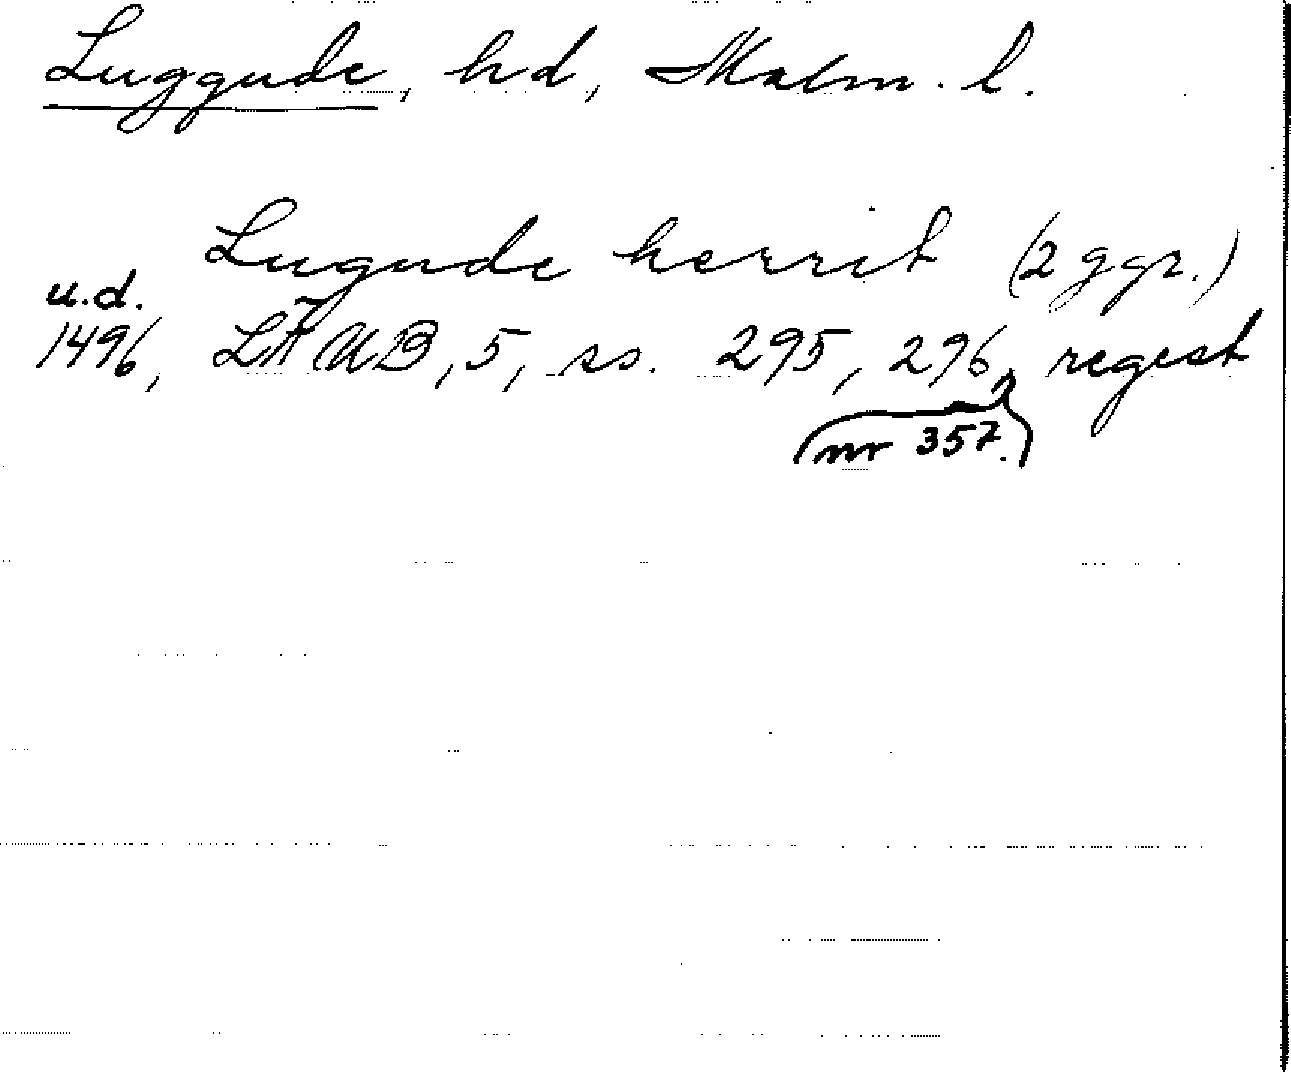 Luggude, hd, Malm. l.
Lugude herrit (2 ggr.)
u.d.
1496, LÄUB, 5, ss. 295, 296, regest
nr 357.